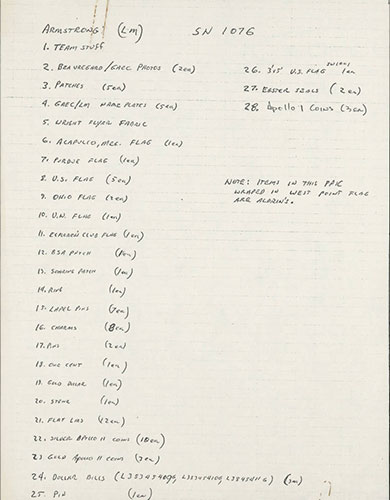 ARMSTRONG (LM) SN 1076
1. TEAM STUFF
2. BEAUREGARD/GAEC PHOTOS (2ea)
3. PATCHES (5ea)
4. GAEC/LM NAME PLATES (5ea)
5. WRIGHT FLYER FABRIC
6. ACAPULCO, MEX. FLAG (1ea)
7. PURDUE FLAG (1ea)
8. U.S. FLAG (5ea)
9. OHIO FLAG
10. U.N. FLAG (1ea)
11. CLUB FLAG (1ea)
12. BSA PATCH
13. SOARING PATCH (1ea)
14. RING (1ea)
15. LAPEL PINS (7ea)
16. CHARMS (8ea)
17. PINS (2ea)
18. ONE CENT (1ea)
19. GOLD DOLLAR (1ea)
20. STONE (1ea)
21. FLAT (12ea)
22. SILVER APOLLO 11 COINS (10ea)
23. GOLD APOLLO 11 COINS (3ea)
24. DOLLAR BILLS (3ea)
25. PIN (1ea)
26. 3'x5' U.S. FLAG 1ea
27. EASTER SEALS (2ea)
28. APOLLO 1 COINS (3ea)
NOTE: ITEMS IN THIS PPK
WRAPED IN WEST POINT FLAG
ARE ALDRIN'S.